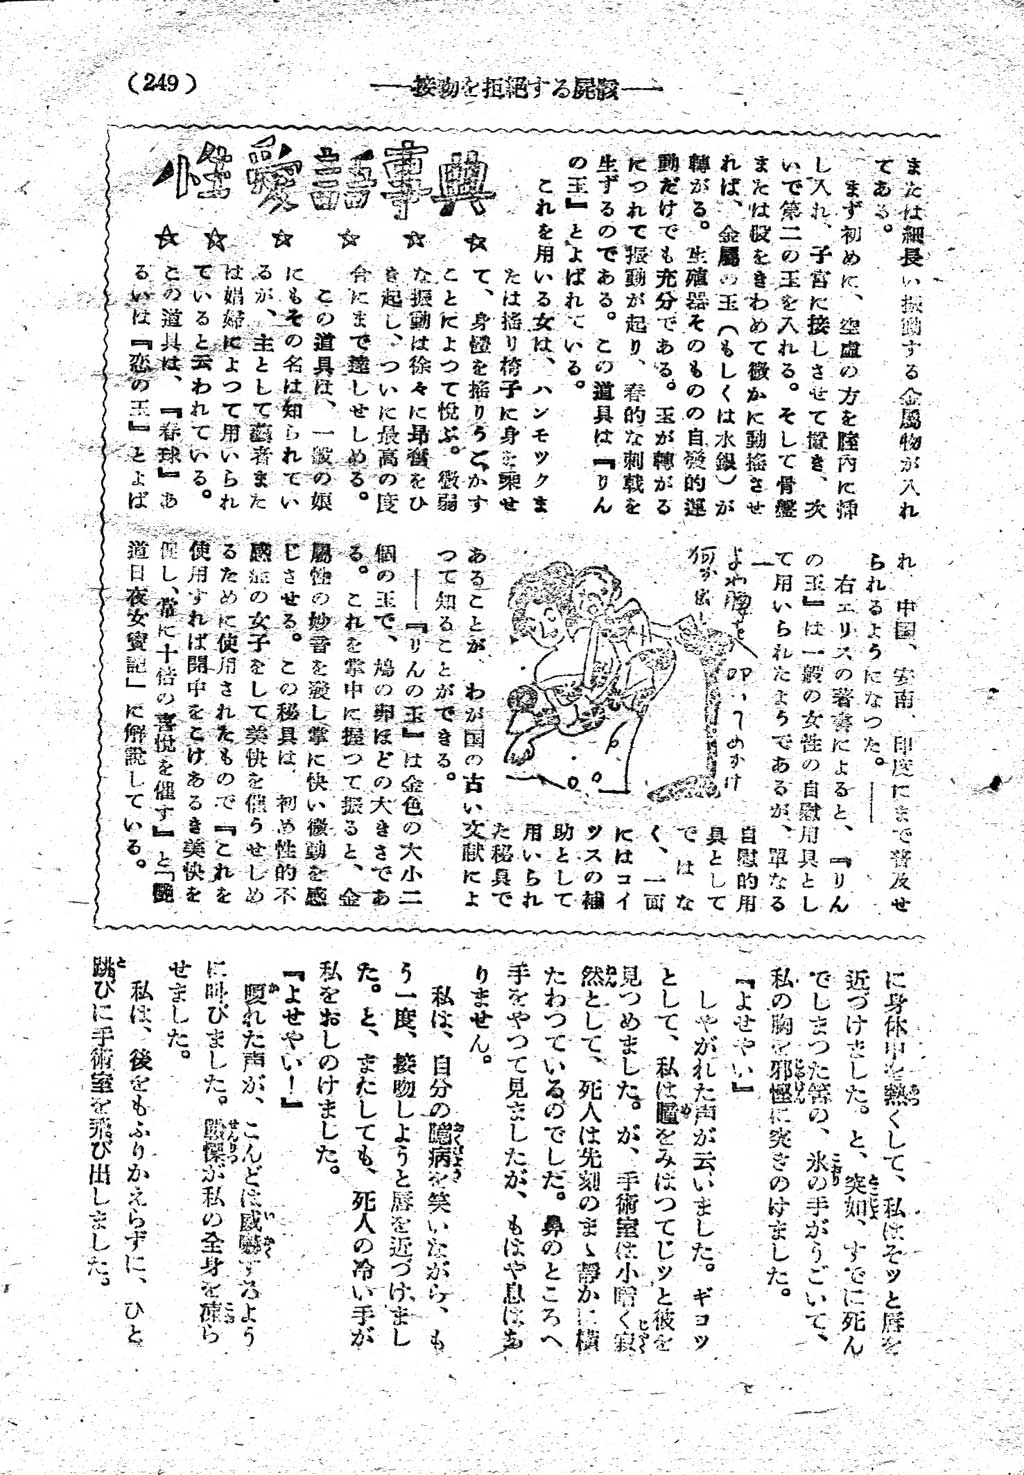 (249)
――接吻を拒絶する屍骸――
性愛語事典
☆ ☆ ☆ ☆ ☆ ☆
または細長い振動する金属物が入れ
てある。
まず初めに、空虚の方を膣内に挿
し入れ、子宮に接しさせて置き、次
いで第二の玉を入れる。そして骨盤
または股をきわめて微かに動揺させ
れば、金属の玉（もしくは水銀）が
轉がる。生殖器そのものの自発的運
動だけでも充分である。玉が轉がる
につれて振動が起り、春的な刺戟を
生ずるのである。この道具は『りん
の玉』とよばれている。
これを用いる女は、ハンモックま
たは搖り椅子に身を乗せ
て、身體を搖りうごかす
ことによつて悦ぶ。微弱
な振動は徐々に昻奮をひ
き起し、ついに最高の度
合にまで達しせしめる。
この道具は、一般の娘
にもその名は知られてい
るが、主として藝者また
は娼婦によつて用いられ
ていると云われている。
この道具は、『春球』あ
るいは『恋の玉』とよば
れ、中国、安南、印度にまで普及せ
られるようになつた。――
右エリスの著書によると、『りん
の玉』は一般の女性の自慰用具とし
て用いられたようであるが、單なる
自慰的用
具として
ではな
く、一面
にはコイ
ツスの補
助として
用いられ
た秘具で
あることが、わが国の古い文献によ
つて知ることができる。
――『りんの玉』は金色の大小二
個の玉で、鳩の卵ほどの大きさであ
る。これを掌中に握つて振ると、金
属性の妙音を発し掌に快い微動を感
じさせる。この秘具は、初め性的不
感症の女子をして美快を催うせしめ
るために使用されたもので『これを
使用すれば閨中をこけあるき美快を
促し、常に十倍の喜悦を催す』と「艶
道日夜女寶記」に解説している。
に身体中を熱くして、私はそッと唇を
近づけました。と、突如、すでに死ん
でしまつた筈の、氷の手がうごいて、
私の胸を邪慳に突きのけました。
『よせやい』
しやがれた声が云いました。ギョッ
として、私は瞳をみはつてじッと彼を
見つめました。が、手術室は小暗く寂
然として、死人は先刻のまゝ靜かに横
たわつているのでした。鼻のところへ
手をやつて見ましたが、もはや息はあ
りません。
私は、自分の臆病を笑いながら、も
う一度、接吻しようと唇を近づけまし
た。と、またしても、死人の冷い手が
私をおしのけました。
『よせやい！』
嗄れた声が、こんどは威嚇するよう
に叫びました。戰慄が私の全身を凍ら
せました。
私は、後をもふりかえらずに、ひと
跳びに手術室を飛び出しました。